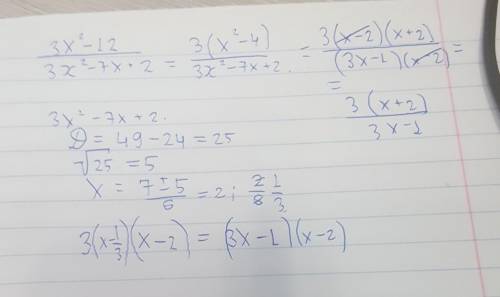 (3x²-12)/(3x²-7x+2) = 3(x²-4)/(3x²-7x+2) = 3(x-2)(x+2)/((3x-1)(x-2)) =
= 3(x+2)/(3x-1)
3x²-7x+2.
D = 49-24 = 25
√25 = 5
x = (7±5)/6 = 2; 2/8 1/3
3(x-1/3)(x-2) = (3x-1)(x-2)